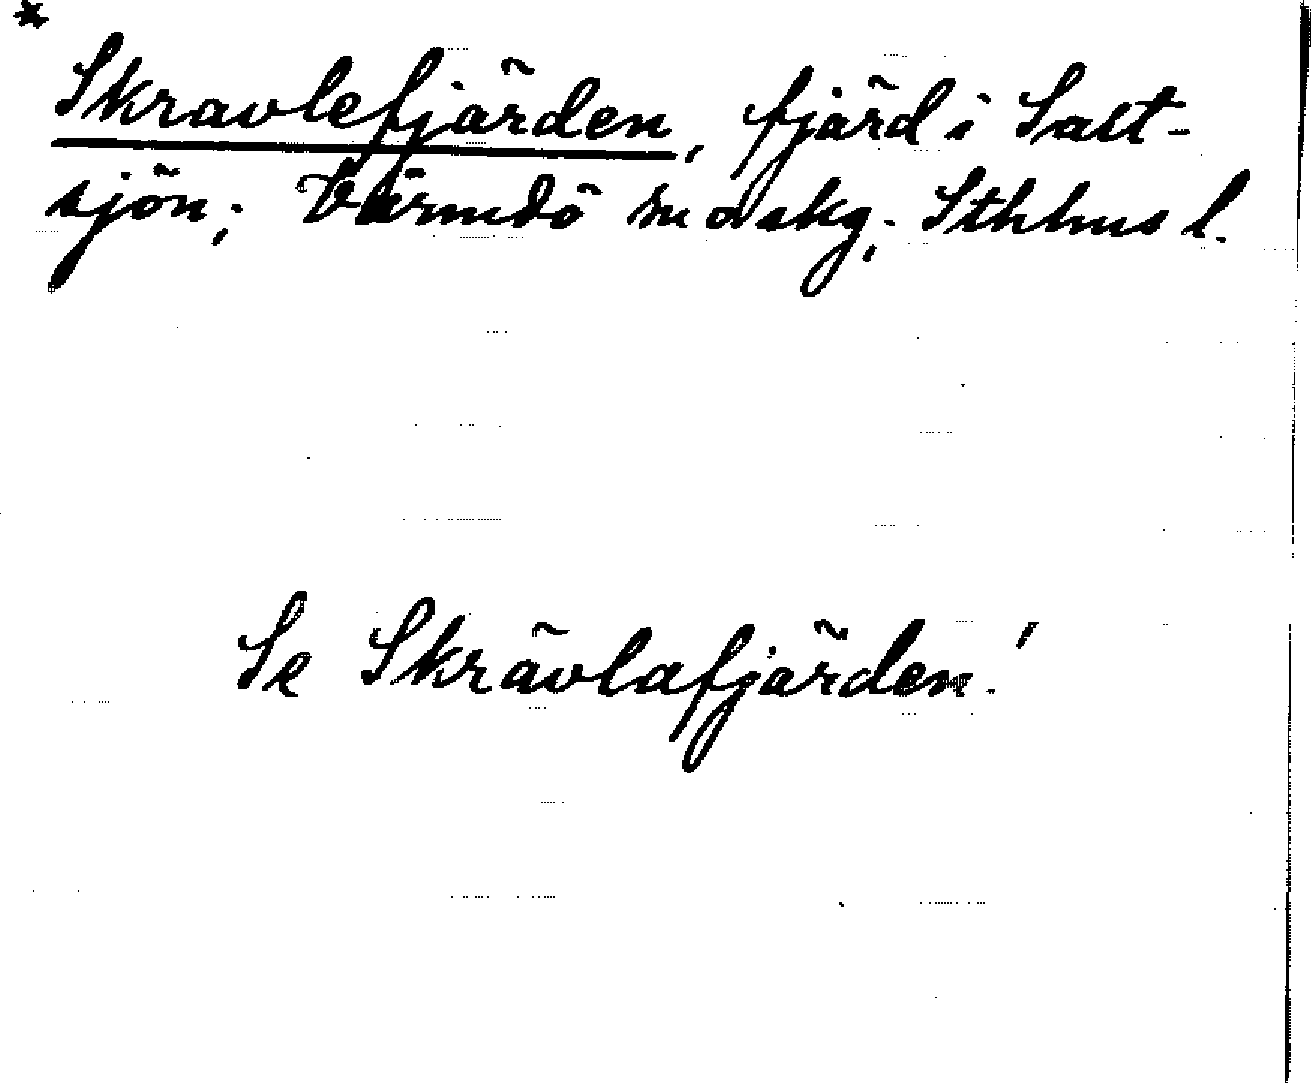 *
Skravlefjärden, fjärd i Salt-
sjön; Värmdö sn o skg; Sthlms l.
Se Skrävlafjärden!